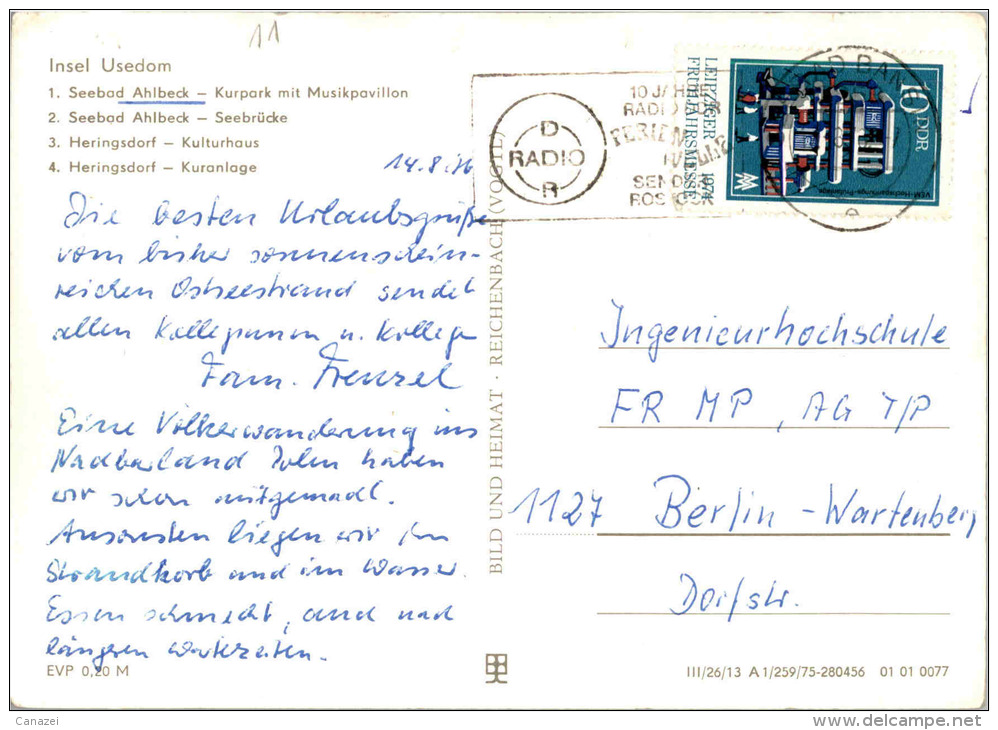 11
Insel Usedom
1. Seebad Ahlbeck – Kurpark mit Musikpavillon
2. Seebad Ahlbeck – Seebrücke
3. Heringsdorf – Kulturhaus
4. Heringsdorf – Kuranlage
14.8.76
Die besten Urlaubsgrüße
vom bisher sonnenschein-
reichen Ostseestrand sendet
allen Kolleginnen u. Kollegen
Fam. Frenzel
Eine Völkerwanderung ins
Nachbarland Polen haben
wir schon mitgemacht.
Ansonsten liegen wir im
Strandkorb und im Wasser.
Essen schmeckt, auch nach
längeren Wartezeiten.
EVP 0,20 M
BILD UND HEIMAT · REICHENBACH (VOGTL)
D
RADIO
R
10 JAHRE
RADIO DDR
FERIENWELLE
SENDER
ROSTOCK
LEIPZIGER
FRÜHJAHRSMESSE 1974
10 DDR
Ingenieurhochschule
FR MP, AG T/P
1127 Berlin - Wartenberg
Dorfstr.
III/26/13 A 1/259/75-280456 01 01 0077
Canazei
www.delcampe.net